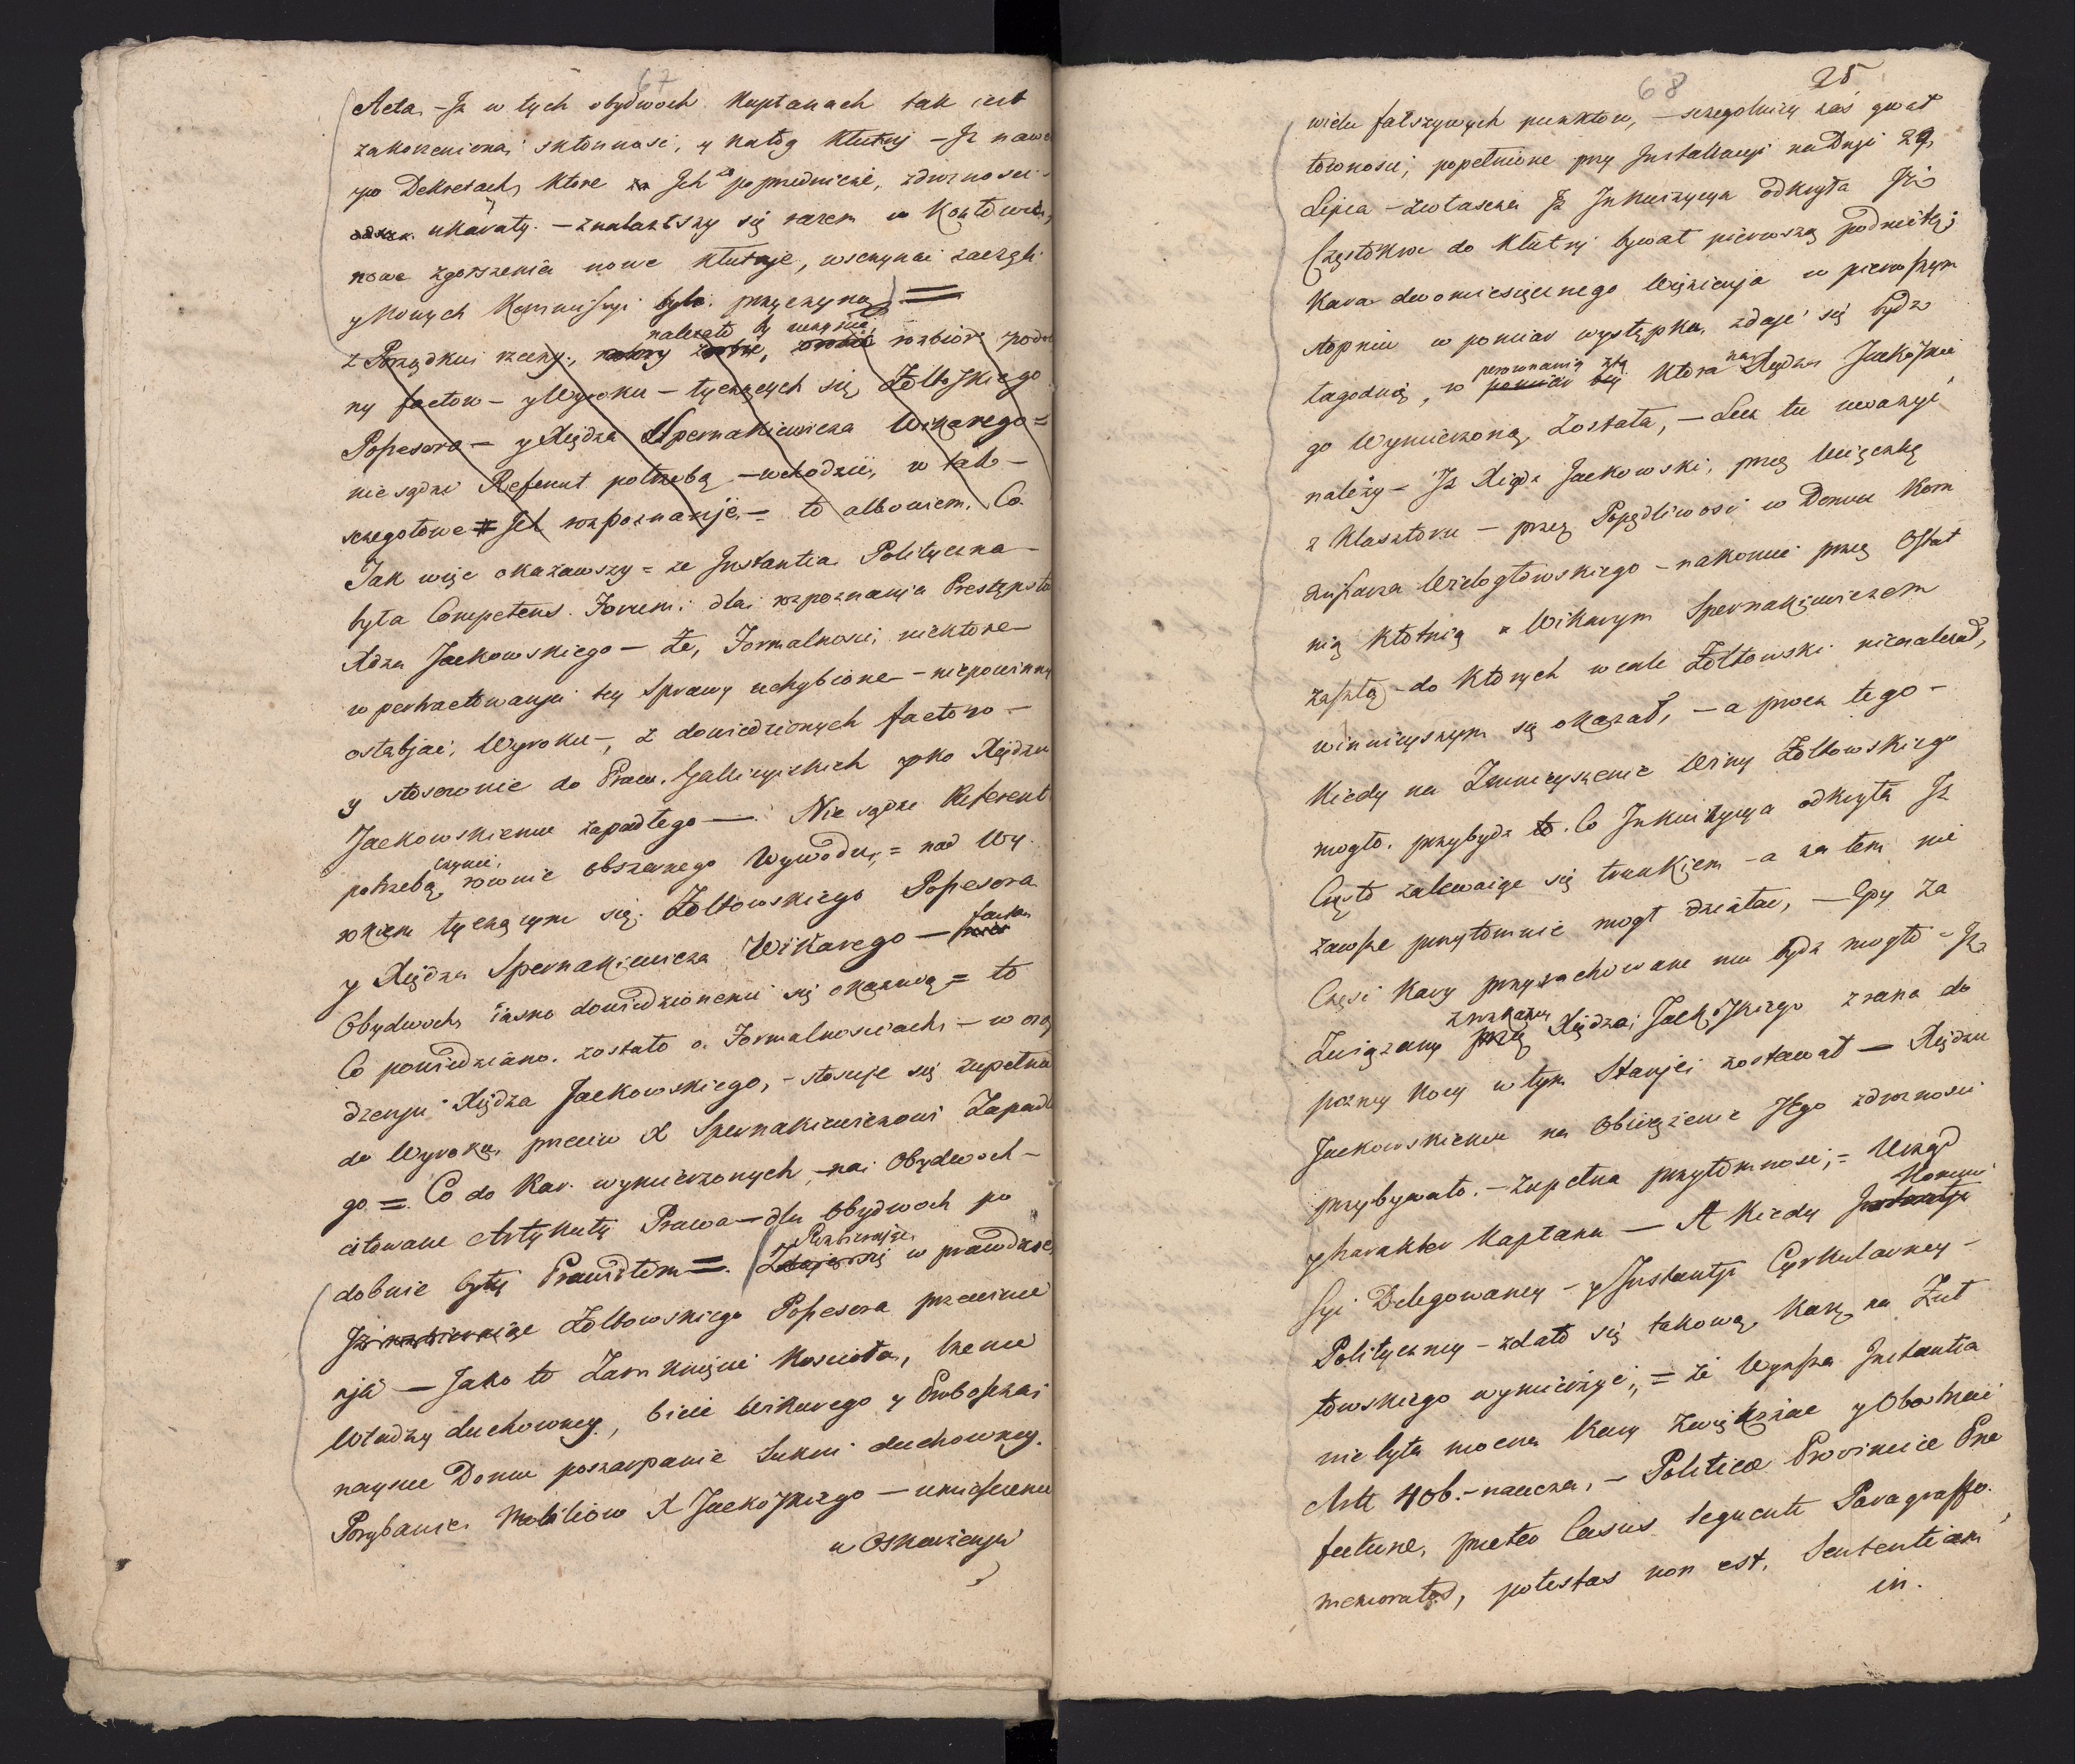 67
Acta – Jz w tych obydwoch Kapłanach tak iest
zakorzeniona skłonnosć, y nałog Kłutnj – Jz nawe
po Dekretach, Ktore Jch za poprzednicze, zdrożnosci
ukarały. – znalazłszy się razem w Kozłowie,
nowe zgorszenia nowe Kłutnje, wszczynać zaczęli
y Nowych Kommissyi byli przyczyną =
należało by uczynić
z Porządku rzeczy, rozbior podob
ny factow – y Wyroku – tyczących się Żołtowskiego
Possesora – y Xiędza Spernakiewicza Wikarego =
nie sądzi Referent potrzebą – wchodzić, w tak –
szczegołowe Jch rozpoznanje – to albowiem Co
Jak więc okazawszy = ze Jnstantia Polityczna –
była Competens Forum dla rozpoznanja Przestępstw
Xdza Jackowskiego – że, Formalnosci niektore –
w pertractowanju tey Sprawy uchybione – niepowinny
osłabjać, Wyroku –, z dowiedzionych factow –
y stosownie do Praw Galliczyiskich p-ko Xiędzu
Jackowskiemu zapadłego –. Nie sądzi Referent
czynić
potrzebą, rownie obszernego Wywodu, = nad Wy
rokiem tyczącym się Żołtowskiego Possesora
facta
y Xiędza Spernakiewicza Wikarego –
Obydwoch iasno dowiedzionemi się okazuią = to
Co powiedziano zostało o Formalnosciach – w osą
dzenju Xiędza Jackowskiego, – stosuje się zupełnie
do Wyroku przeciw X Spernakiewiczowi Zapadłe
go =. Co do Kar wymierzonych, na Obydwoch –
citowane Artykuły Prawa – dla obydwoch po
dobnie były Prawidłem =. Rozbierając w prawdzie
Żołtowskiego Possesora przewinie
nja – Jako to Zamknięcie Koscioła, wbrew
Władzy duchowney, bicie Wikarego y Proboszcza
naysciu Domu poszarpanie Sukni duchowney
Porąbanie Mobiliow X Jackowskiego – umieszczenie
w Oskarżenju

68 25
wielu fałszywych punktow, – szczegolniey zaś gwał
townosci, popełnione przy Jnstallacyi na Dnju 29
Lipca – zwłaszcza Jz Jnkwizycya odkryła Jz
Częstokroć do Kłutnj bywał pierwszą podnietą;
Kara dwomiesięcznego Więzienja w pierwszym
stopniu w pomiar występku, zdaje się bydz
łagodną, w porownaniu tey Ktora na Xiędza Jackowskie
go Wymierzoną została, – Lecz tu uważyć
należy – Jz Xiądz Jackowski, przez Ucieczkę
z Klasztoru – przez Popędliwosć w Domu Kom
missarza Wielogłowskiego – nakoniec przez Ostat
nią Kłotnię z Wikarym Spernakiewiczem
zaszłą – do Ktorych wcale Żołtowski nienależał,
winnieyszym się okazał, – a procz tego –
Kiedy na Zmnieyszenie Winy Żołtowskiego
mogło przybydz to Co Jnkwizycya odkryła Jz
Często zalewaiąc się trunkiem – a zatem nie
zawsze przytomnie mogł działać, – Gdy za
Częsć Kary przyrachowane mu bydz mogło – Jz
z rozkazu
Związany Xiędza Jackowskiego z rana do
pozney nocy w tym Stanje zostawał – Xiędzu
Jackowskiemu na Obciążenie Jego zdrożnosci
przybywało – zupełna przytomnosć, = Urząd
y harakter Kapłana – A Kiedy Kommi
ssyi Delegowaney – y Jnstantji Cyrkularney –
Polityczney – zdało się takową Karę na Żoł
towskiego wymierzyć, = że Wyższa Jnstantia
nie była mocna Kary zwiększać y Obostrzać
Art 406 – naucza, – Politicæ Provinciæ Præ
fecturæ, præter Casus sequenti Paragrapho
memoratos, potestas non est, Sententiam
in.